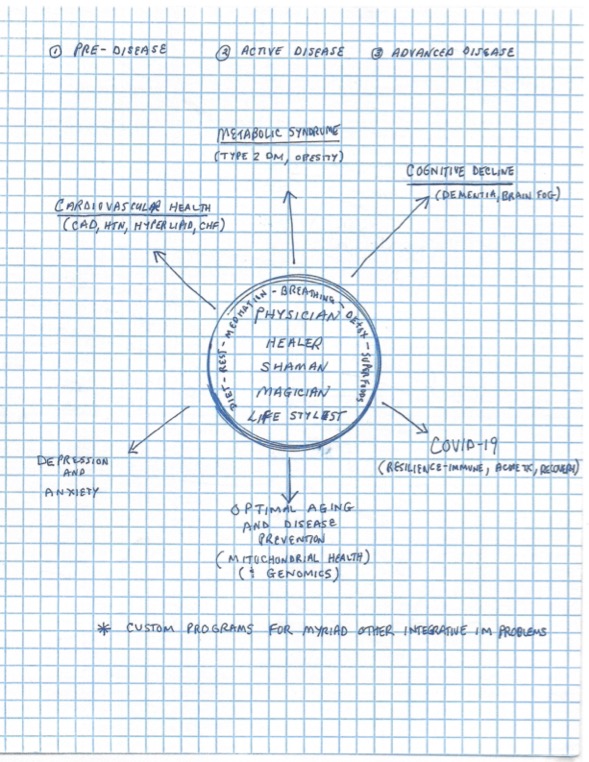 ① PRE-DISEASE ② ACTIVE DISEASE ③ ADVANCED DISEASE
METABOLIC SYNDROME
(TYPE 2 DM, OBESITY)
COGNITIVE DECLINE
(DEMENTIA, BRAIN FOG)
CARDIOVASCULAR HEALTH
(CAD, HTN, HYPERLIPID, CHF)
DIET - REST - MEDITATION - BREATHING - DETOX - SUPERFOODS
PHYSICIAN
HEALER
SHAMAN
MAGICIAN
LIFE STYLEST
COVID-19
(RESILIENCE-IMMUNE, ACUTE TX, RECOVERY)
DEPRESSION
AND
ANXIETY
OPTIMAL AGING
AND DISEASE
PREVENTION
(MITOCHONDRIAL HEALTH)
(& GENOMICS)
* CUSTOM PROGRAMS FOR MYRIAD OTHER INTEGRATIVE IM PROBLEMS